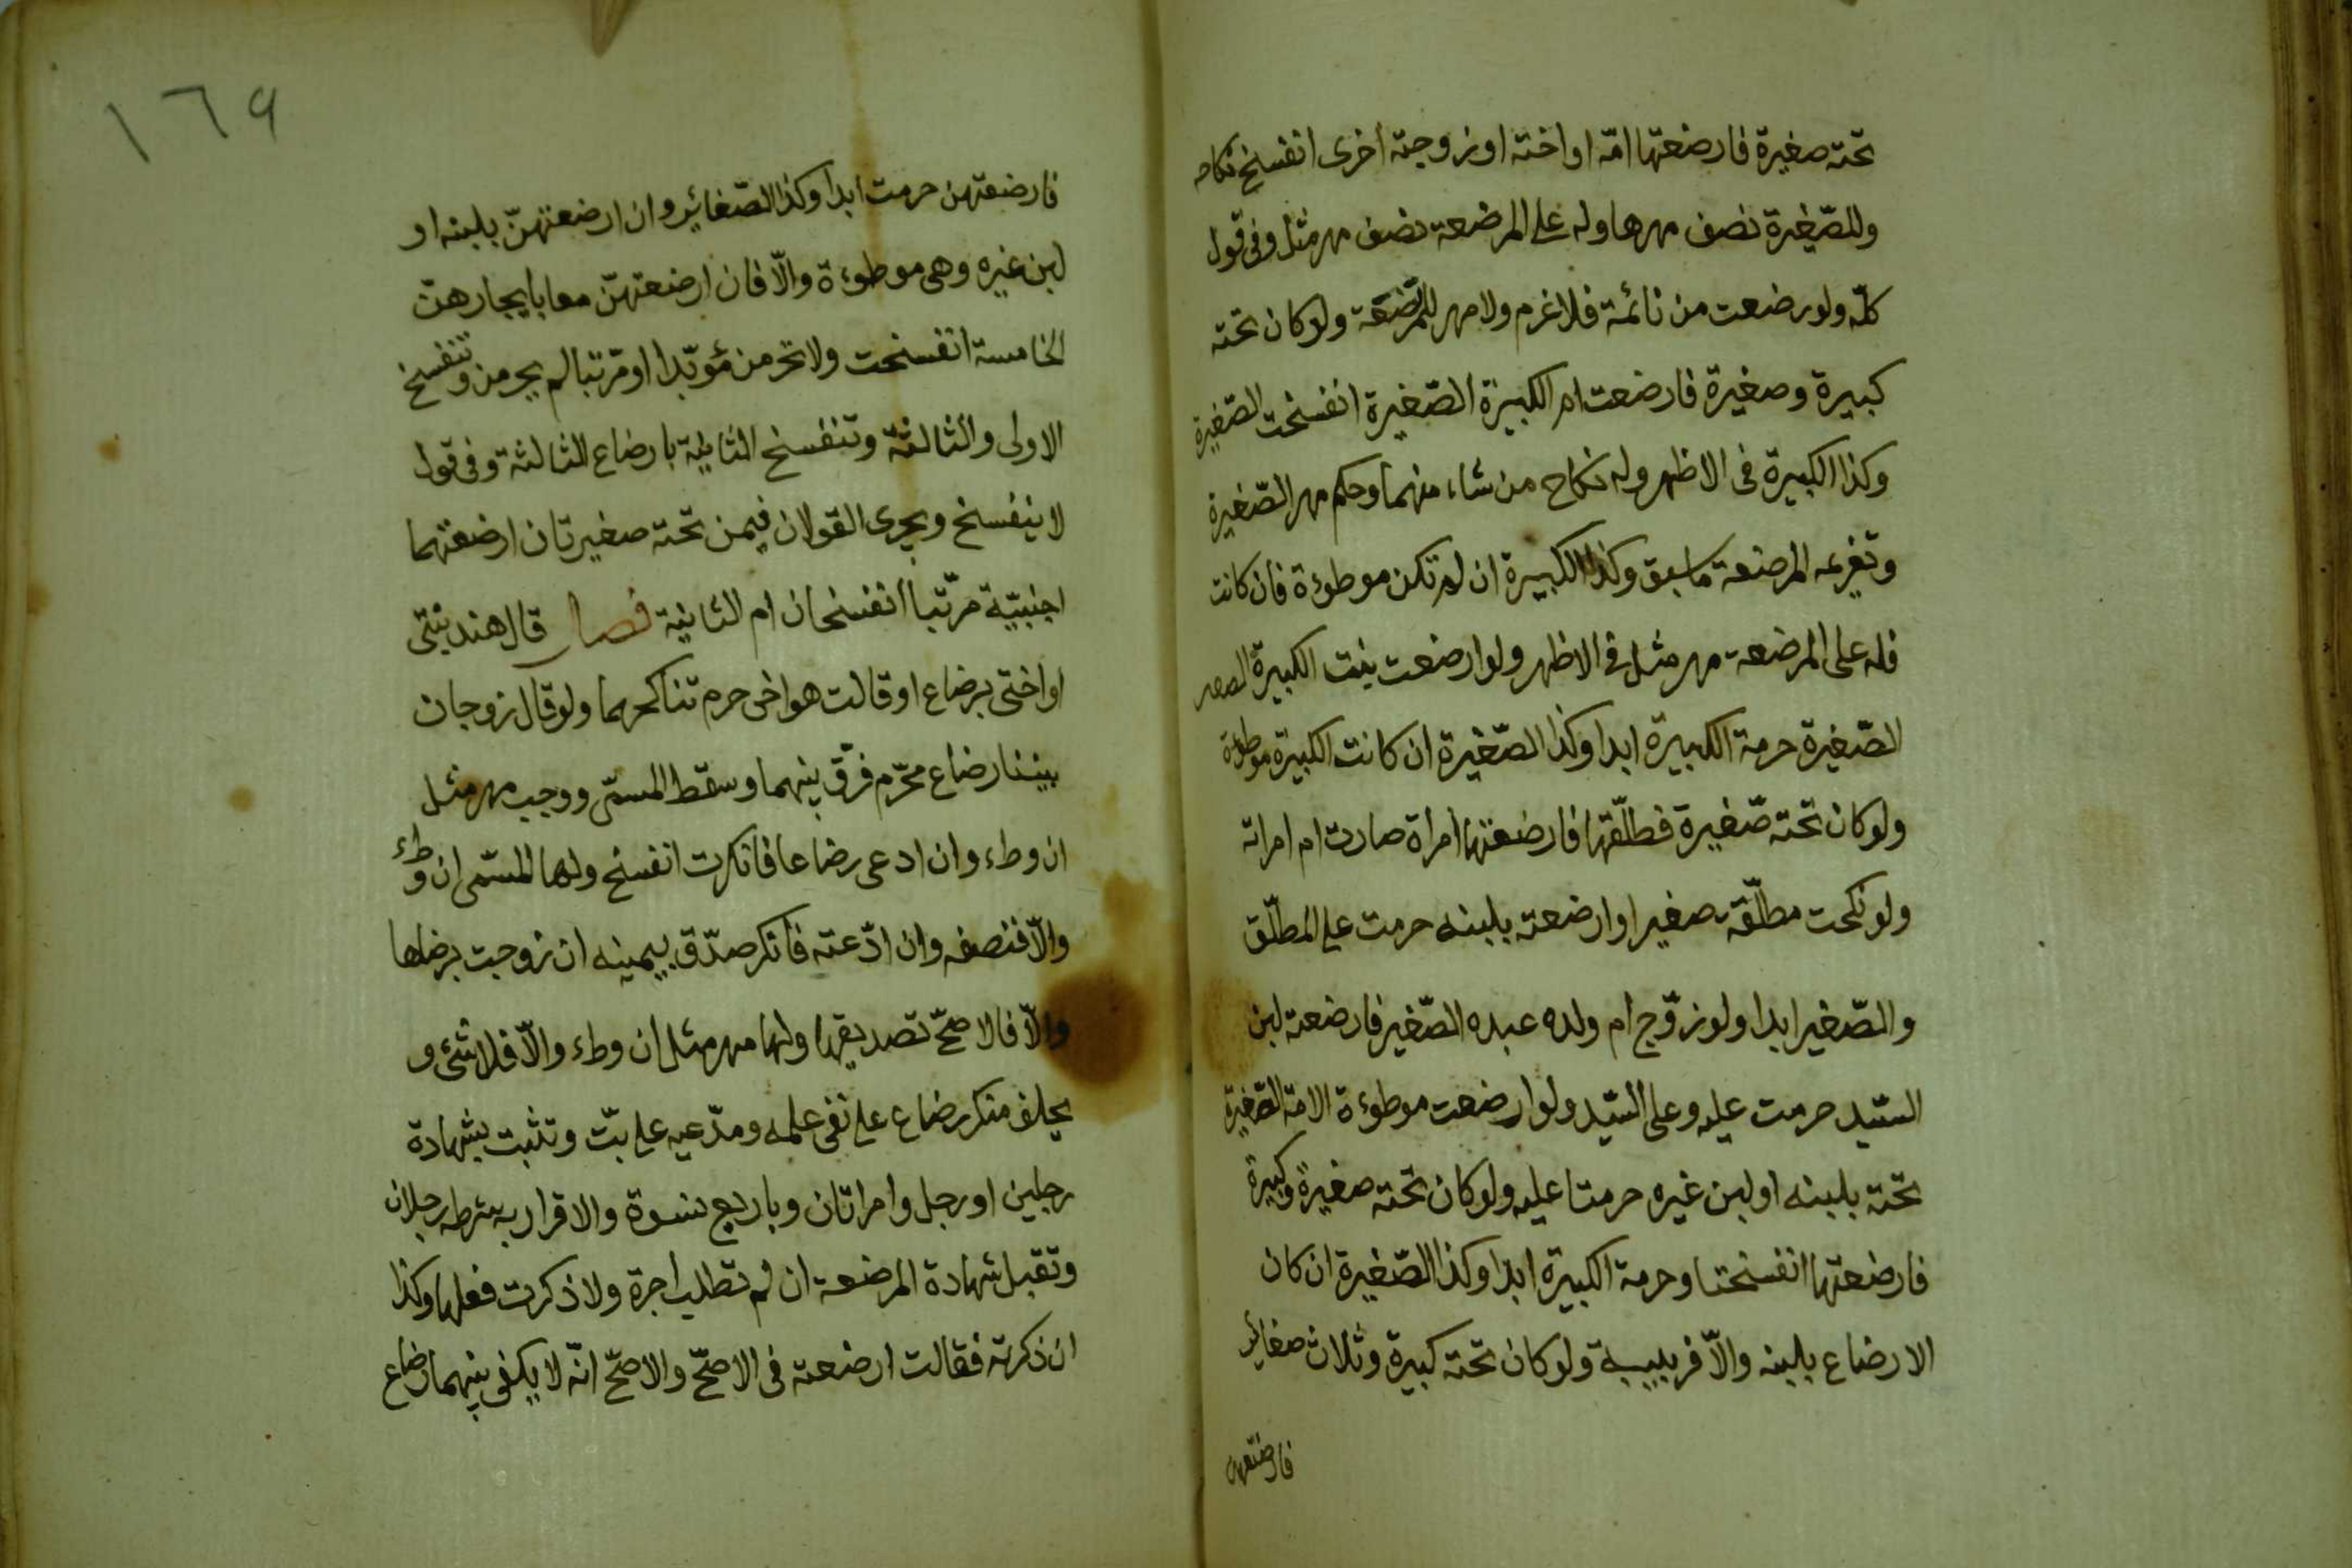 تحته صغيرة فارضعتها امّه او اخته او زوجته أخرى انفسخ نكاحه
وللصّغيرة نصف مهرها وله على المرضعة نصف مهر مثل وفى قول
كلّه ولو رضعت من نائمة فلا غرم ولا مهر للمرضعة ولو كان تحته
كبيرة وصغيرة فارضعت ام الكبيرة الصّغيرة انفسخت الصّغيرة
وكذا الكبيرة فى الاظهر وله نكاح من شاء منهما وحكم مهر الصّغيرة
وتغريمه المرضعة ما سبق وكذا الكبيرة ان لم تكن موطوءة فان كانت
فله على المرضعة مهر مثل فى الاظهر ولو ارضعت بنت الكبيرة
الصّغيرة حرمة الكبيرة ابدا وكذا الصّغيرة ان كانت الكبيرة موطوءة
ولو كان تحته صّغيرة فطلّقها فارضعتها امراة صارت ام امراته
ولو نكحت مطلّقته صغيرا وارضعته بلبنه حرمت على المطلّق
والصّغير ابدا ولو زوّج ام ولده عبده الصّغير فارضعته لبن
السّيد حرمت عليه وعلى السّيد ولو ارضعت موطوءة الامة الصّغيرة
تحّته بلبنه او لبن غيره حرمتا عليه ولو كان تحته صغيرة وكبيرة
فارضعتها انفسختا وحرمة الكبيرة ابدا وكذا الصّغيرة ان كان
الارضاع بلبنه والاّ فربيبة ولو كان تحته كبيرة وثلاث صغاير
فارضعتهن
١٦٩
فارضعتهن حرمت ابدا وكذا الصّغائير وان ارضعتهنّ بلبنه او
لبن غيره وهى موطوءة والاّ فان ارضعتهنّ معا بايجارهنّ
الخامسة انفسخت ولا تحرمن مؤبّدا او مرّتبا لم يحرمن وتنفسخ
الاولى والثالثة وتنفسخ الثانية بارضاع الثالثة وفى قول
لا ينفسخ ويجرى القولان فيمن تحته صغيرتان ارضعتهما
اجنبيّة مرتّبا اتنفسخان ام الثانية فصل قال هند بنتى
او اختى برضاع او قالت هو اخى حرم تناكحهما ولو قال زوجان
بيننا رضاع محّرم فرّق بينهما وسقط المسمّى ووجب مهر مثل
ان وطء وان ادعى رضاعا فانكرت انفسخ ولها المسّمى ان وطء
والاّ فنصفه وان ادّعته فأنكر صدّق بيمينه ان زوجت برضاها
والاّ فالاصحّ تصديقها ولها مهر مثل ان وطء والاّ فلا شئ و
يحلف منكر رضاع على نفى علمه ومدّعيه على بتّ وتثبت بشهادة
رجلين او رجل وامراتان وباربع نسوة والاقرار به شرطه رجلان
وتقبل شهادة المرضعة ان لم تطلب اجرة ولا ذكرت فعلها وكذا
ان ذكرته فقالت ارضعته فى الاصحّ والاصحّ انّه لا يكفى بينهما رضاع